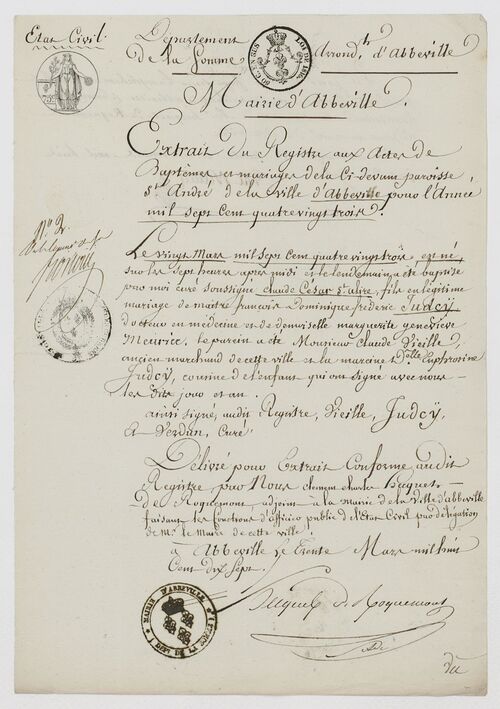 Etat Civil.
Departement
de la Somme
Arrond.t d'Abbeville
Mairie d'Abbeville.
Extrait du Registre aux Actes de
Baptêmes et mariages de la Ci-devant paroisse
St André de la ville d'abbeville pour l'Année
mil sept Cent quatrevingt trois.
Le vingt Mars mil sept Cent quatrevingt trois, est né
sur les sept heures apres midi et le lendemain, a été baptisé
par moi curé soussigné claude César st alire, fils en légitime
mariage de maitre françois Dominique frederic Judcÿ,
docteur en médecine et de demoiselle marguerite geneviève
Meurice. le parein a été Monsieur Claude Vieille,
ancien marchand de cette ville et la mareine dlle Euphrosine
Judcÿ, cousine de l'enfant qui ont signé avec nous
les dits jour et an.
ainsi signé, audit Registre, Vieille, Judcÿ
et Verdun, Curé.
Délivré pour Extrait Conforme audit
Registre, par Nous clement charles
de Roquemont, adjoint à la mairie de la Ville d'abbeville
faisant les fonctions d'officier public de l'Etat Civil par délégation
de Mr le Maire de cette ville.
a Abbeville le Trente Mars mil huit
Cent dix Sept.
de Roquemont
MAIRIE D'ABBEVILLE